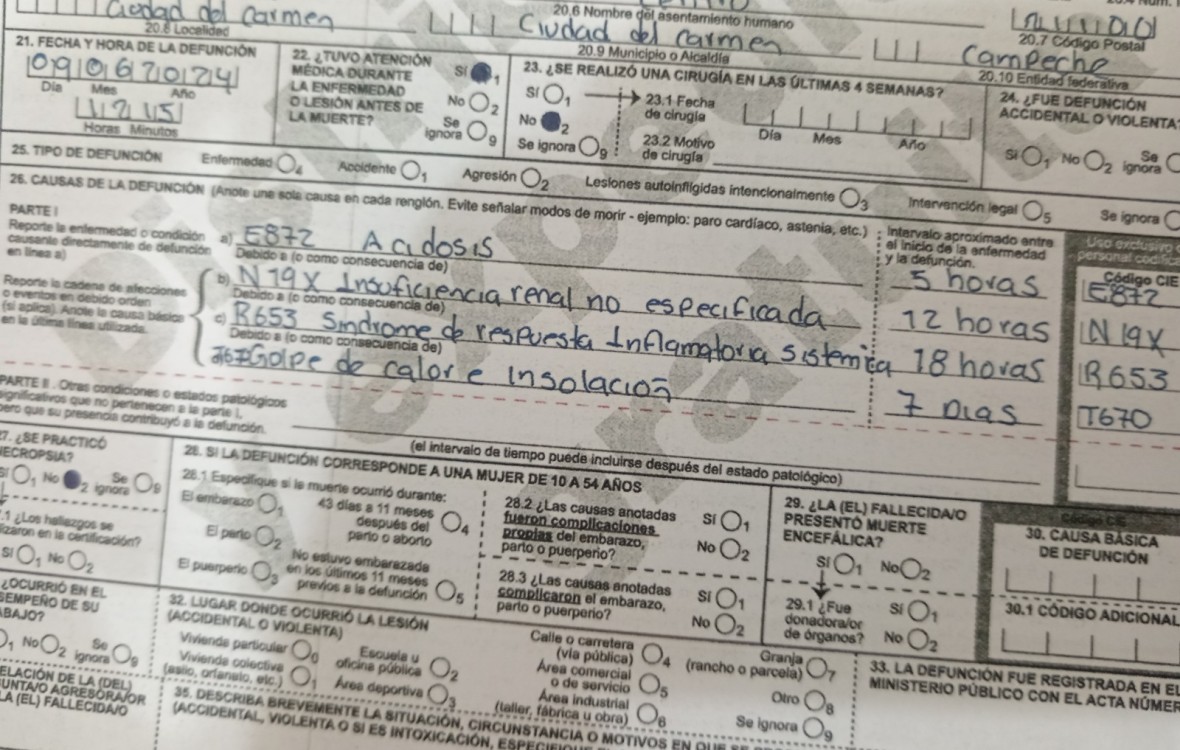 Ciudad del Carmen
20.8 Localidad
20.6 Nombre del asentamiento humano
Ciudad del Carmen
20.9 Municipio o Alcaldía
20.7 Código Postal
Campeche
20.10 Entidad federativa
21. FECHA Y HORA DE LA DEFUNCIÓN
09062024
Día Mes Año
1215
Horas Minutos
22. ¿TUVO ATENCIÓN
MÉDICA DURANTE
LA ENFERMEDAD
O LESIÓN ANTES DE
LA MUERTE?
Sí 1
No 2
Se ignora 9
23. ¿SE REALIZÓ UNA CIRUGÍA EN LAS ÚLTIMAS 4 SEMANAS?
Sí 1
No 2
Se ignora 9
23.1 Fecha
de cirugía
Día Mes Año
23.2 Motivo
de cirugía
24. ¿FUE DEFUNCIÓN
ACCIDENTAL O VIOLENTA
Sí 1 No 2 Se ignora
25. TIPO DE DEFUNCIÓN Enfermedad 4 Accidente 1 Agresión 2 Lesiones autoinfligidas intencionalmente 3 Intervención legal 5 Se ignora
26. CAUSAS DE LA DEFUNCIÓN (Anote una sola causa en cada renglón. Evite señalar modos de morir - ejemplo: paro cardíaco, astenia, etc.)
Intervalo aproximado entre
el inicio de la enfermedad
y la defunción.
Uso exclusivo
personal
Código CIE
PARTE I
Reporte la enfermedad o condición
causante directamente de defunción
en línea a)
a) E872 Acidosis
Debido a (o como consecuencia de)
5 horas E872
Reporte la cadena de afecciones
o eventos en debido orden
(si aplica). Anote la causa básica
en la última línea utilizada.
b) N19X Insuficiencia renal no especificada
Debido a (o como consecuencia de)
12 horas N19X
c) R653 Sindrome de respuesta Inflamatoria sistemica
Debido a (o como consecuencia de)
18 horas R653
Golpe de calor e Insolación
7 Dias T670
PARTE II . Otras condiciones o estados patológicos
significativos que no pertenecen a la parte I,
pero que su presencia contribuyó a la defunción.
(el intervalo de tiempo puede incluirse después del estado patológico)
27. ¿SE PRACTICÓ
NECROPSIA?
Sí 1 No 2 Se ignora 9
.1 ¿Los hallazgos se
lizaron en la certificación?
Sí 1 No 2
28. SI LA DEFUNCIÓN CORRESPONDE A UNA MUJER DE 10 A 54 AÑOS
28.1 Especifique si la muerte ocurrió durante:
El embarazo 1
El parto 2
El puerperio 3
43 días a 11 meses
después del
parto o aborto 4
No estuvo embarazada
en los últimos 11 meses
previos a la defunción 5
28.2 ¿Las causas anotadas
fueron complicaciones
propias del embarazo,
parto o puerperio?
Sí 1
No 2
28.3 ¿Las causas anotadas
complicaron el embarazo,
parto o puerperio?
Sí 1
No 2
29. ¿LA (EL) FALLECIDA/O
PRESENTÓ MUERTE
ENCEFÁLICA?
Sí 1 No 2
29.1 ¿Fue
donadora/or
de órganos?
Sí 1
No 2
Código CIE
30. CAUSA BÁSICA
DE DEFUNCIÓN
30.1 CÓDIGO ADICIONAL
¿OCURRIÓ EN EL
SEMPEÑO DE SU
ABAJO?
1 No 2 Se ignora 9
32. LUGAR DONDE OCURRIÓ LA LESIÓN
(ACCIDENTAL O VIOLENTA)
Vivienda particular 0
Vivienda colectiva
(asilo, orfanato, etc.) 1
Escuela u
oficina pública 2
Área deportiva 3
Calle o carretera
(vía pública) 4
Área comercial
o de servicio 5
Área industrial
(taller, fábrica u obra) 6
Granja
(rancho o parcela) 7
Otro 8
Se ignora 9
33. LA DEFUNCIÓN FUE REGISTRADA EN EL
MINISTERIO PÚBLICO CON EL ACTA NÚMER
ELACIÓN DE LA (DEL)
UNTA/O AGRESORA/OR
LA (EL) FALLECIDA/O
35. DESCRIBA BREVEMENTE LA SITUACIÓN, CIRCUNSTANCIA O MOTIVOS EN QUE SE
(ACCIDENTAL, VIOLENTA O SI ES INTOXICACIÓN,